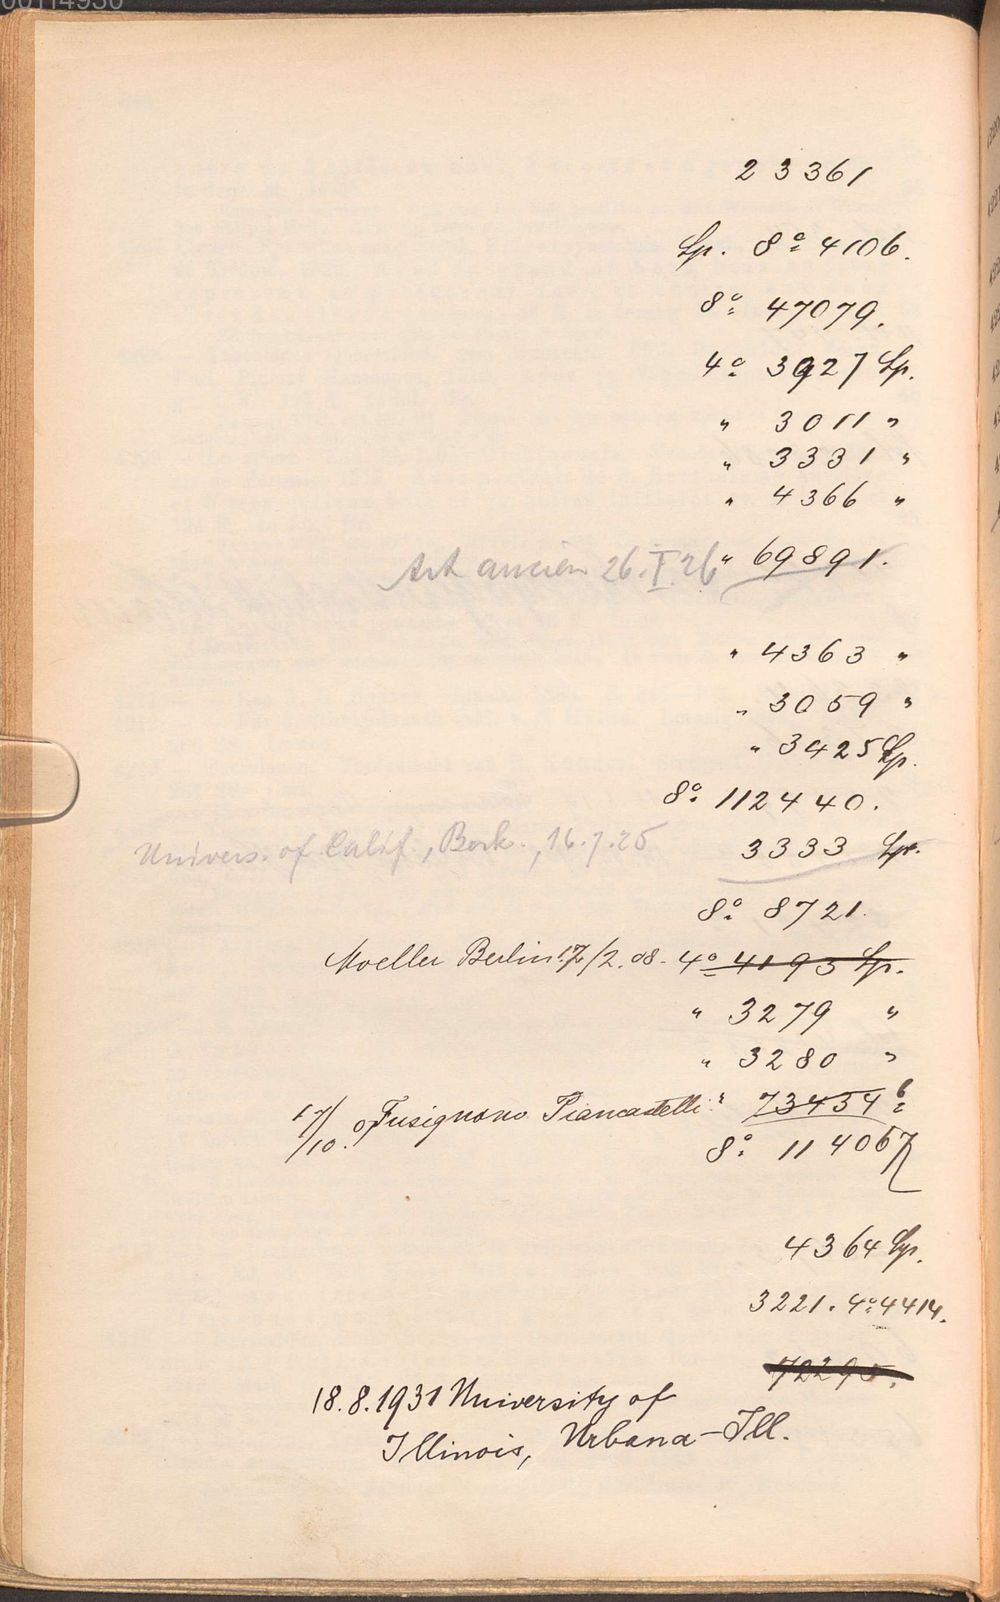 23361
Sp. 8º 4106.
8º 47079.
4º 3927 Sp.
" 3011 "
" 3331 "
" 4366 "
Art ancien 26.I.26 " 69891.
" 4363 "
" 3059 "
" 3425 Sp.
8º 112440.
Univers. of Calif., Berk., 16.7.25 3333 Sp.
8º 8721.
Moeller Berlin 17/2.08. 4º 4193 Sp.
" 3279 "
" 3280 "
17/10. Fusignano Piancastelli " 73434
8º 114067
4364 Sp.
3221. 4º 4414.
72295.
18.8.1931 University of
Illinois, Urbana-Ill.